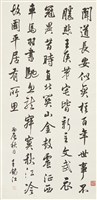 聞道長安似弈棋百年世事不
勝悲王侯第宅皆新主文武衣
冠異昔時直北關山金鼓震征西
車馬羽書馳魚龍寂寞秋江冷
故國平居有所思